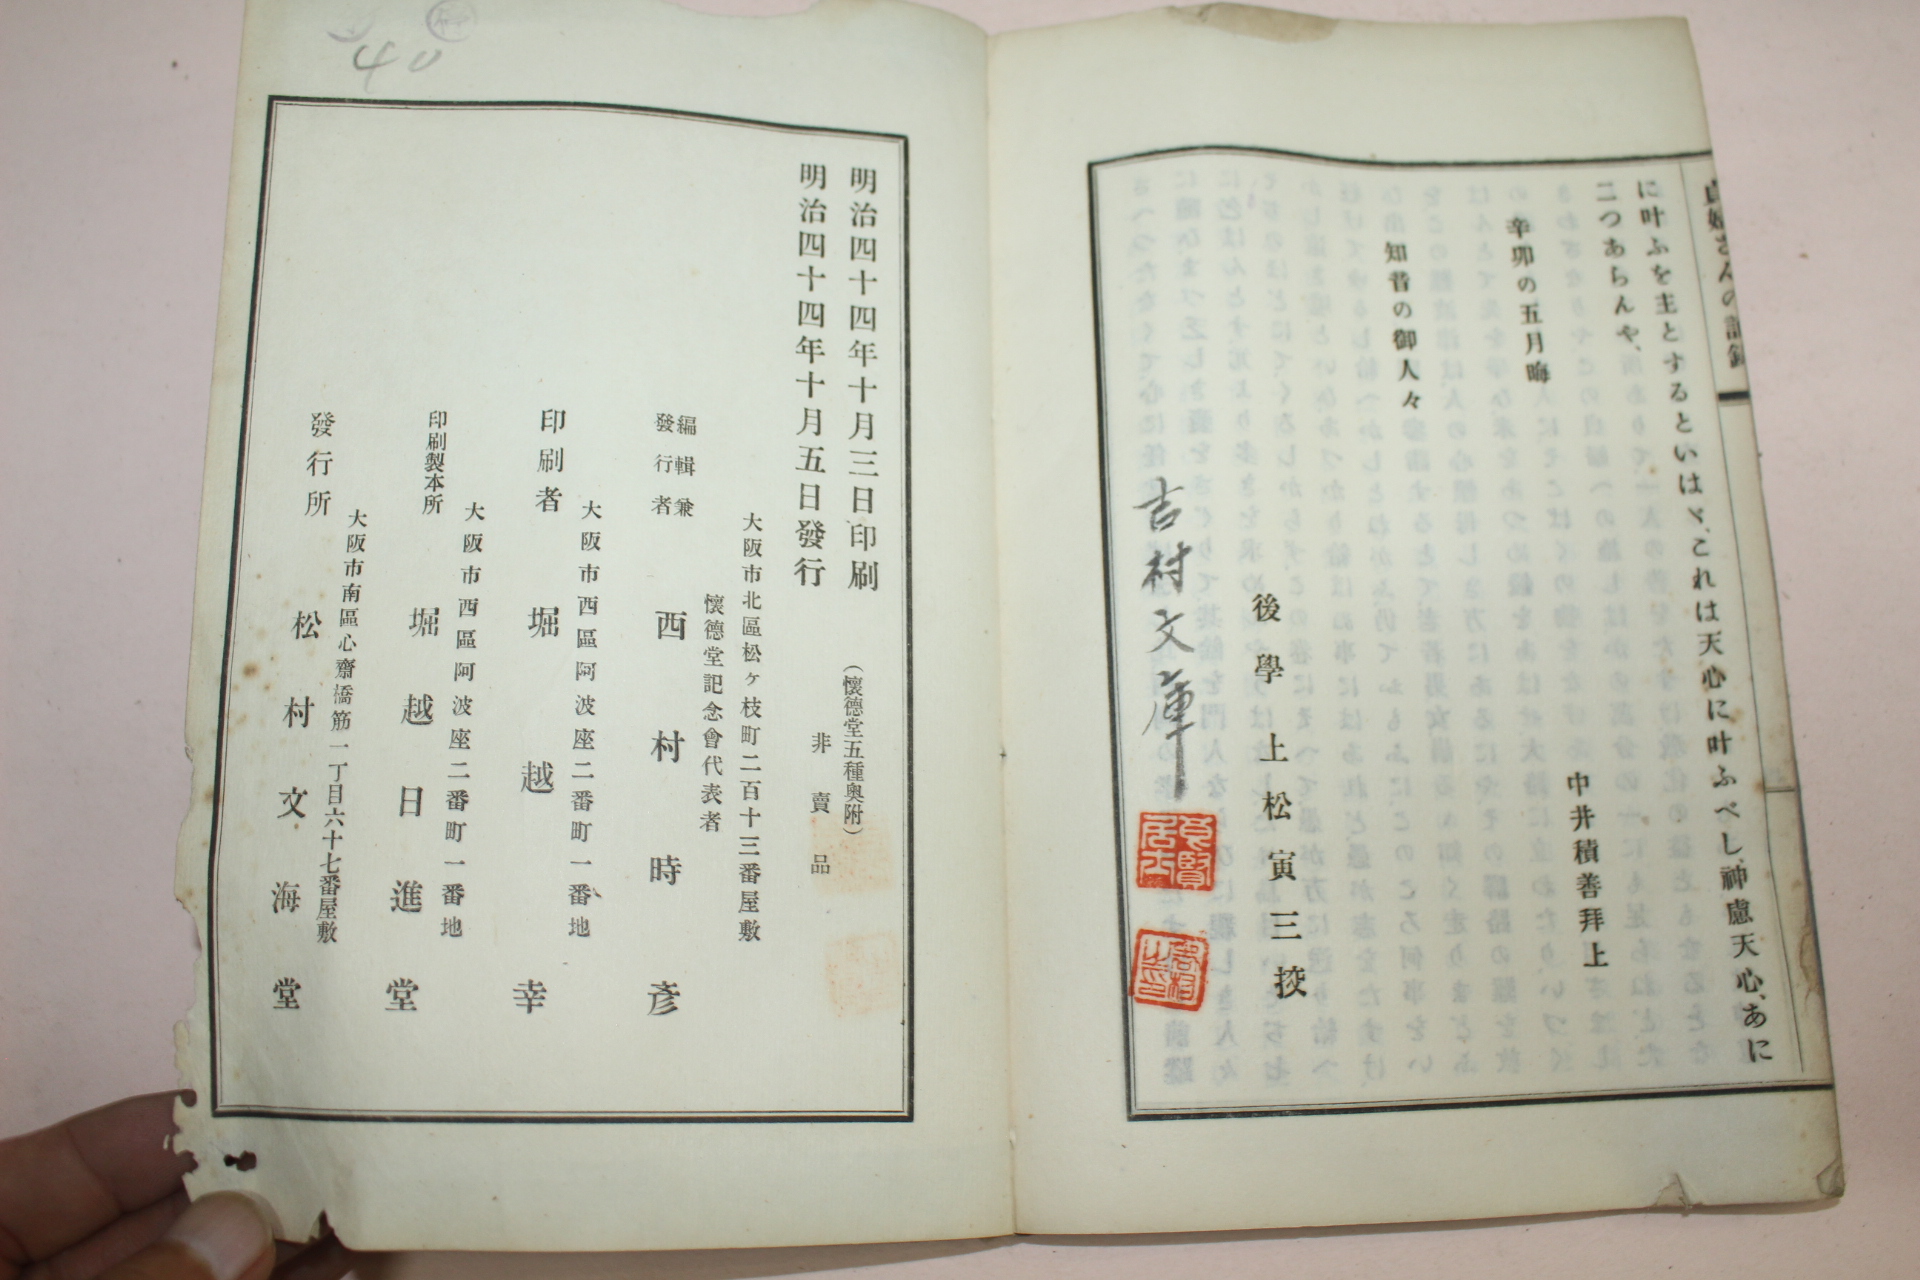 に叶ふを主とするといはゞ、これは天心に叶ふべし、神慮天心、あに
二つあらんや、
辛卯の五月晦
中井積善拜上
知昔の御人々
後學上松寅三挍
吉村文庫
明治四十四年十月三日印刷
明治四十四年十月五日發行
(懷德堂五種奧附)
非賣品
大阪市北區松ヶ枝町二百十三番屋敷
懷德堂記念會代表者
編輯兼
發行者
西村時彥
大阪市西區阿波座二番町一番地
印刷者
堀越幸
大阪市西區阿波座二番町一番地
印刷製本所
堀越日進堂
大阪市南區心齋橋筋一丁目六十七番屋敷
發行所
松村文海堂
40